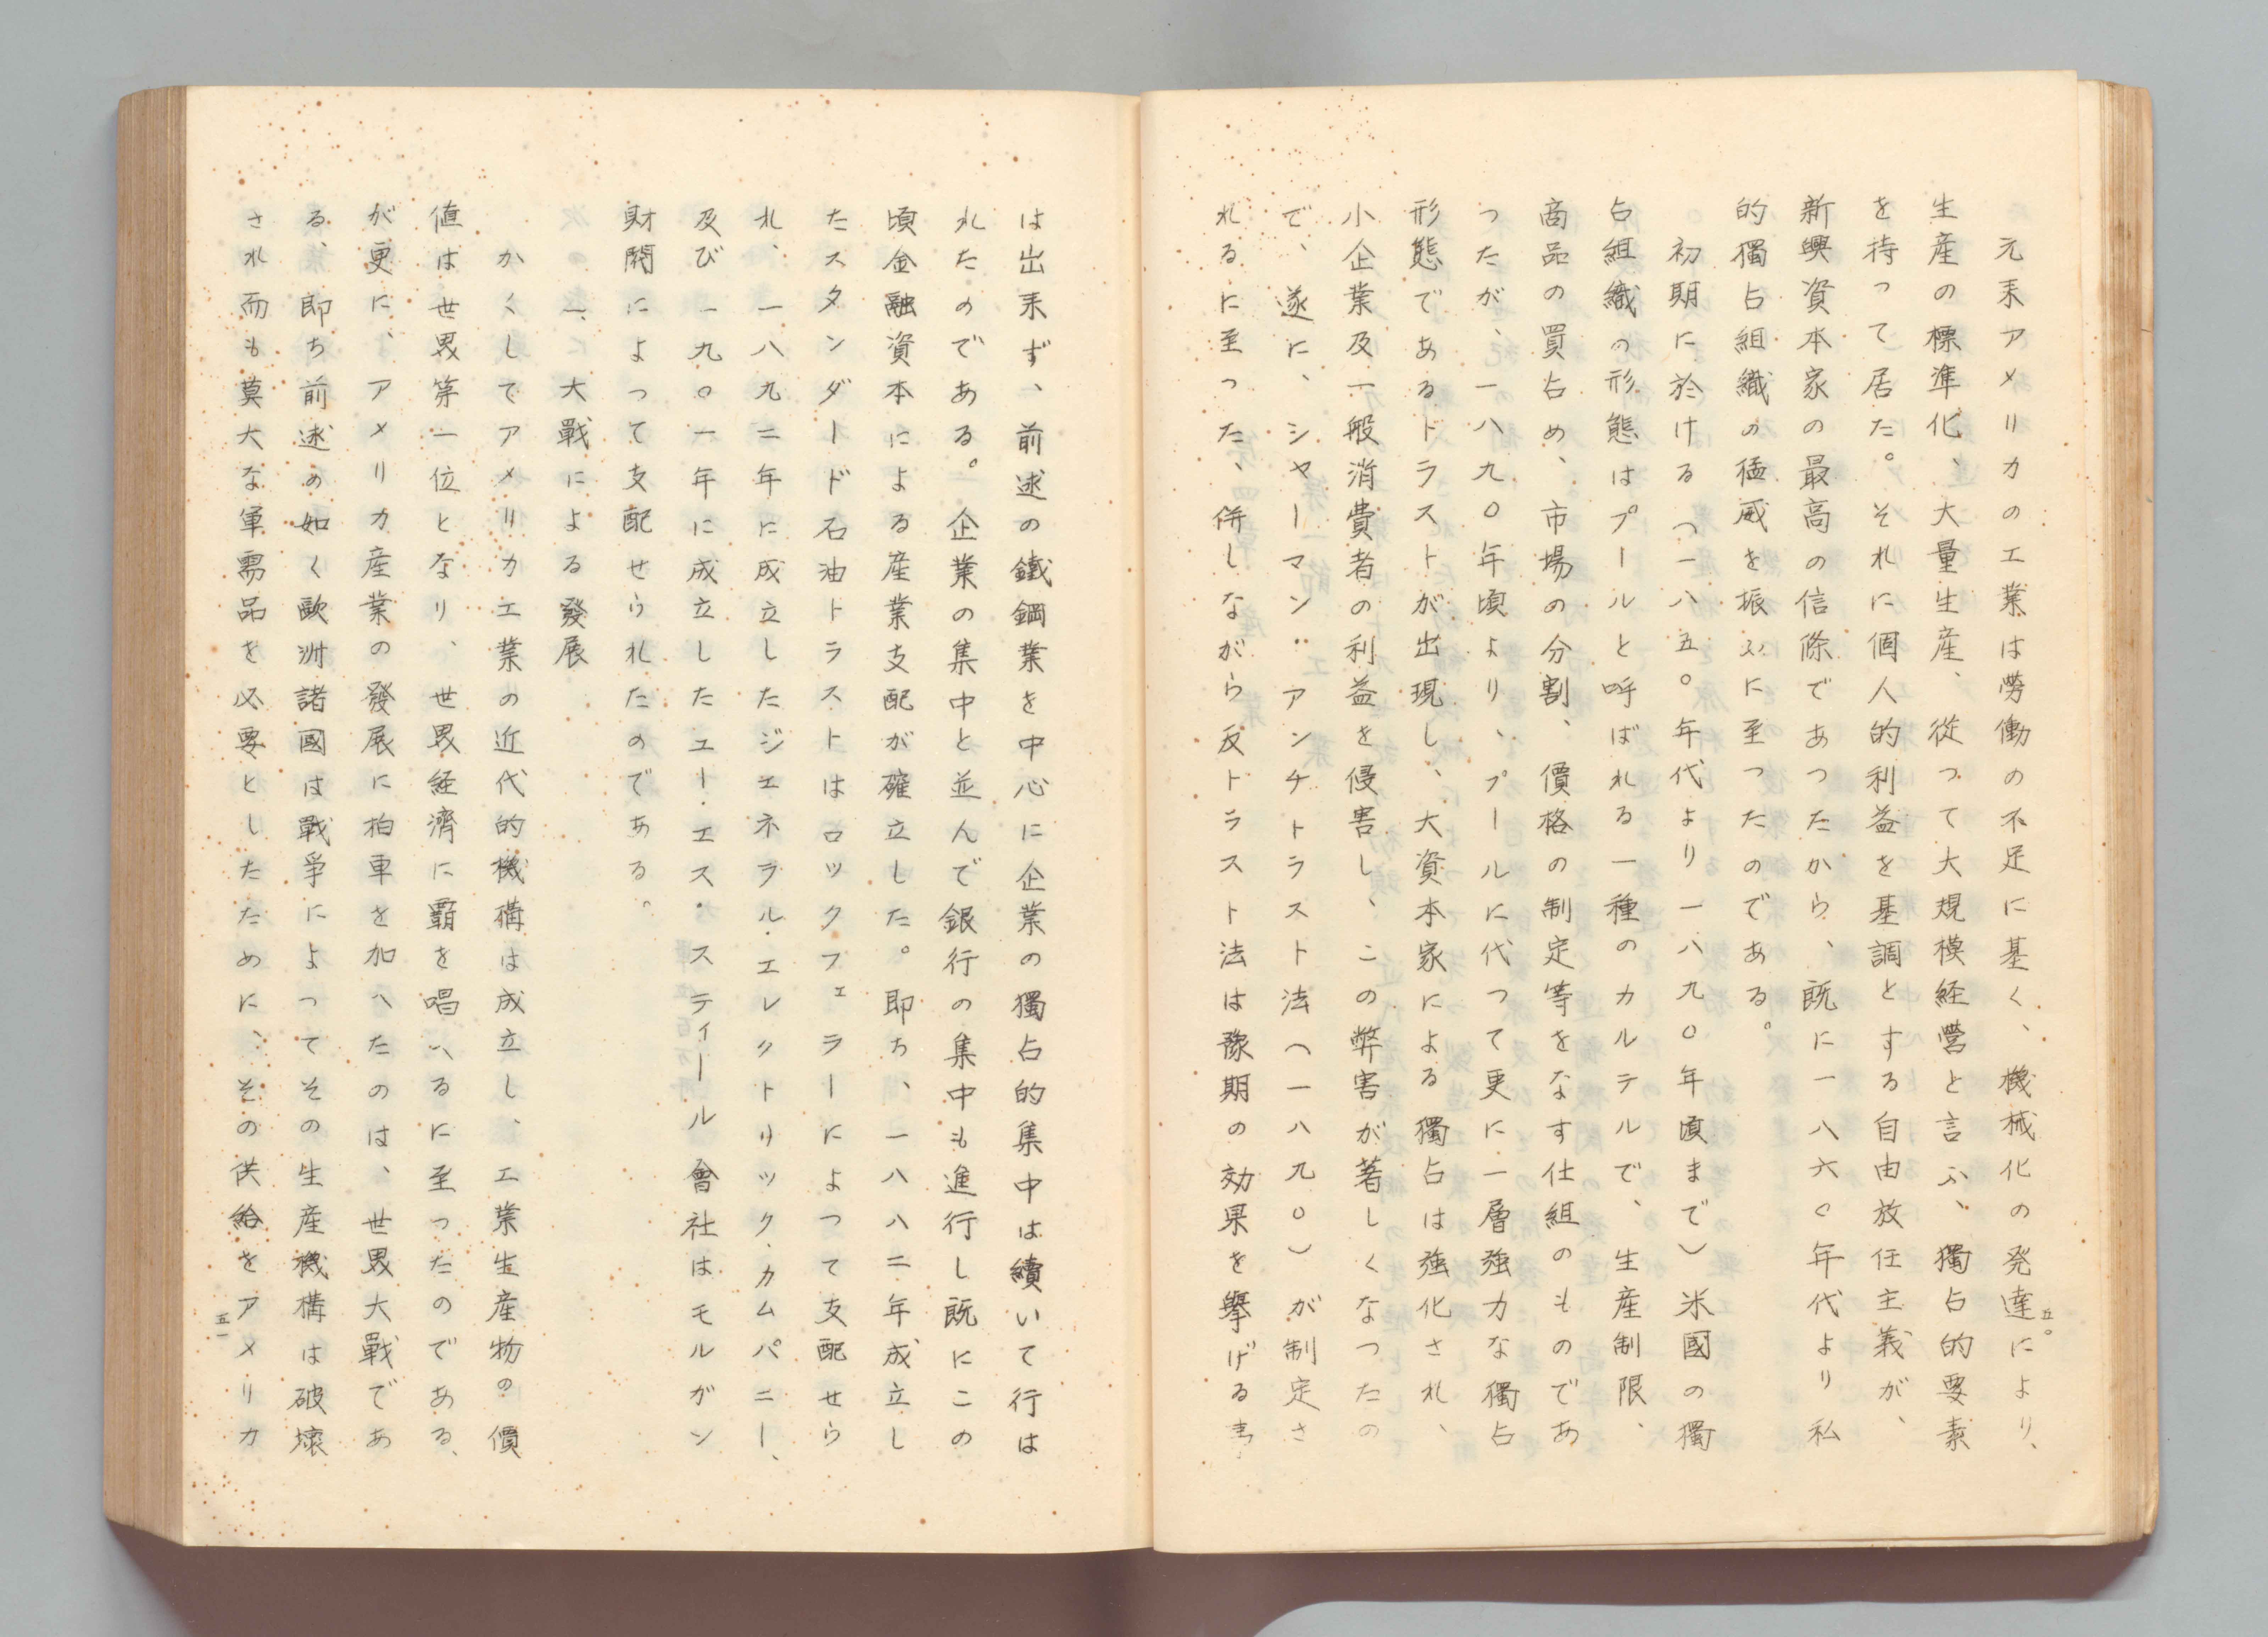 元来アメリカの工業は勞働の不足に基く、機械化の発達により、
生産の標準化、大量生産、從つて大規模経營と言ふ、獨占的要素
を持つて居た。それに個人的利益を基調とする自由放任主義が、
新興資本家の最高の信條であつたから、既に一八六〇年代より私
的獨占組織の猛威を振ふに至つたのである。
初期に於ける（一八五〇年代より一八九〇年頃まで）米國の獨
占組織の形態はプールと呼ばれる一種のカルテルで、生産制限、
商品の買占め、市場の分割、價格の制定等をなす仕組のものであ
つたが、一八九〇年頃より、プールに代つて更に一層強力な獨占
形態であるトラストが出現し、大資本家による獨占は強化され、
小企業及一般消費者の利益を侵害し、この弊害が著しくなつたの
で、遂に、シャーマン・アンチトラスト法（一八九〇）が制定さ
れるに至つた、併しながら反トラスト法は豫期の効果を擧げる事
五〇
は出来ず、前述の鐵鋼業を中心に企業の獨占的集中は續いて行は
れたのである。企業の集中と並んで銀行の集中も進行し既にこの
頃金融資本による産業支配が確立した。即ち、一八八二年成立し
たスタンダード石油トラストはロックフェラーによつて支配せら
れ、一八九二年に成立したジエネラル・エレクトリック・カムパニー、
及び一九〇一年に成立したユー・エス・スティール會社はモルガン
財閥によつて支配せられたのである。
一、大戰による發展
かくしてアメリカ工業の近代的機構は成立し、工業生産物の價
値は世界第一位となり、世界経濟に覇を唱へるに至つたのである、
が更に、アメリカ産業の發展に拍車を加へたのは、世界大戰であ
る、即ち前述の如く歐洲諸國は戰爭によつてその生産機構は破壞
され而も莫大な軍需品を必要としたために、その供給をアメリカ
五一